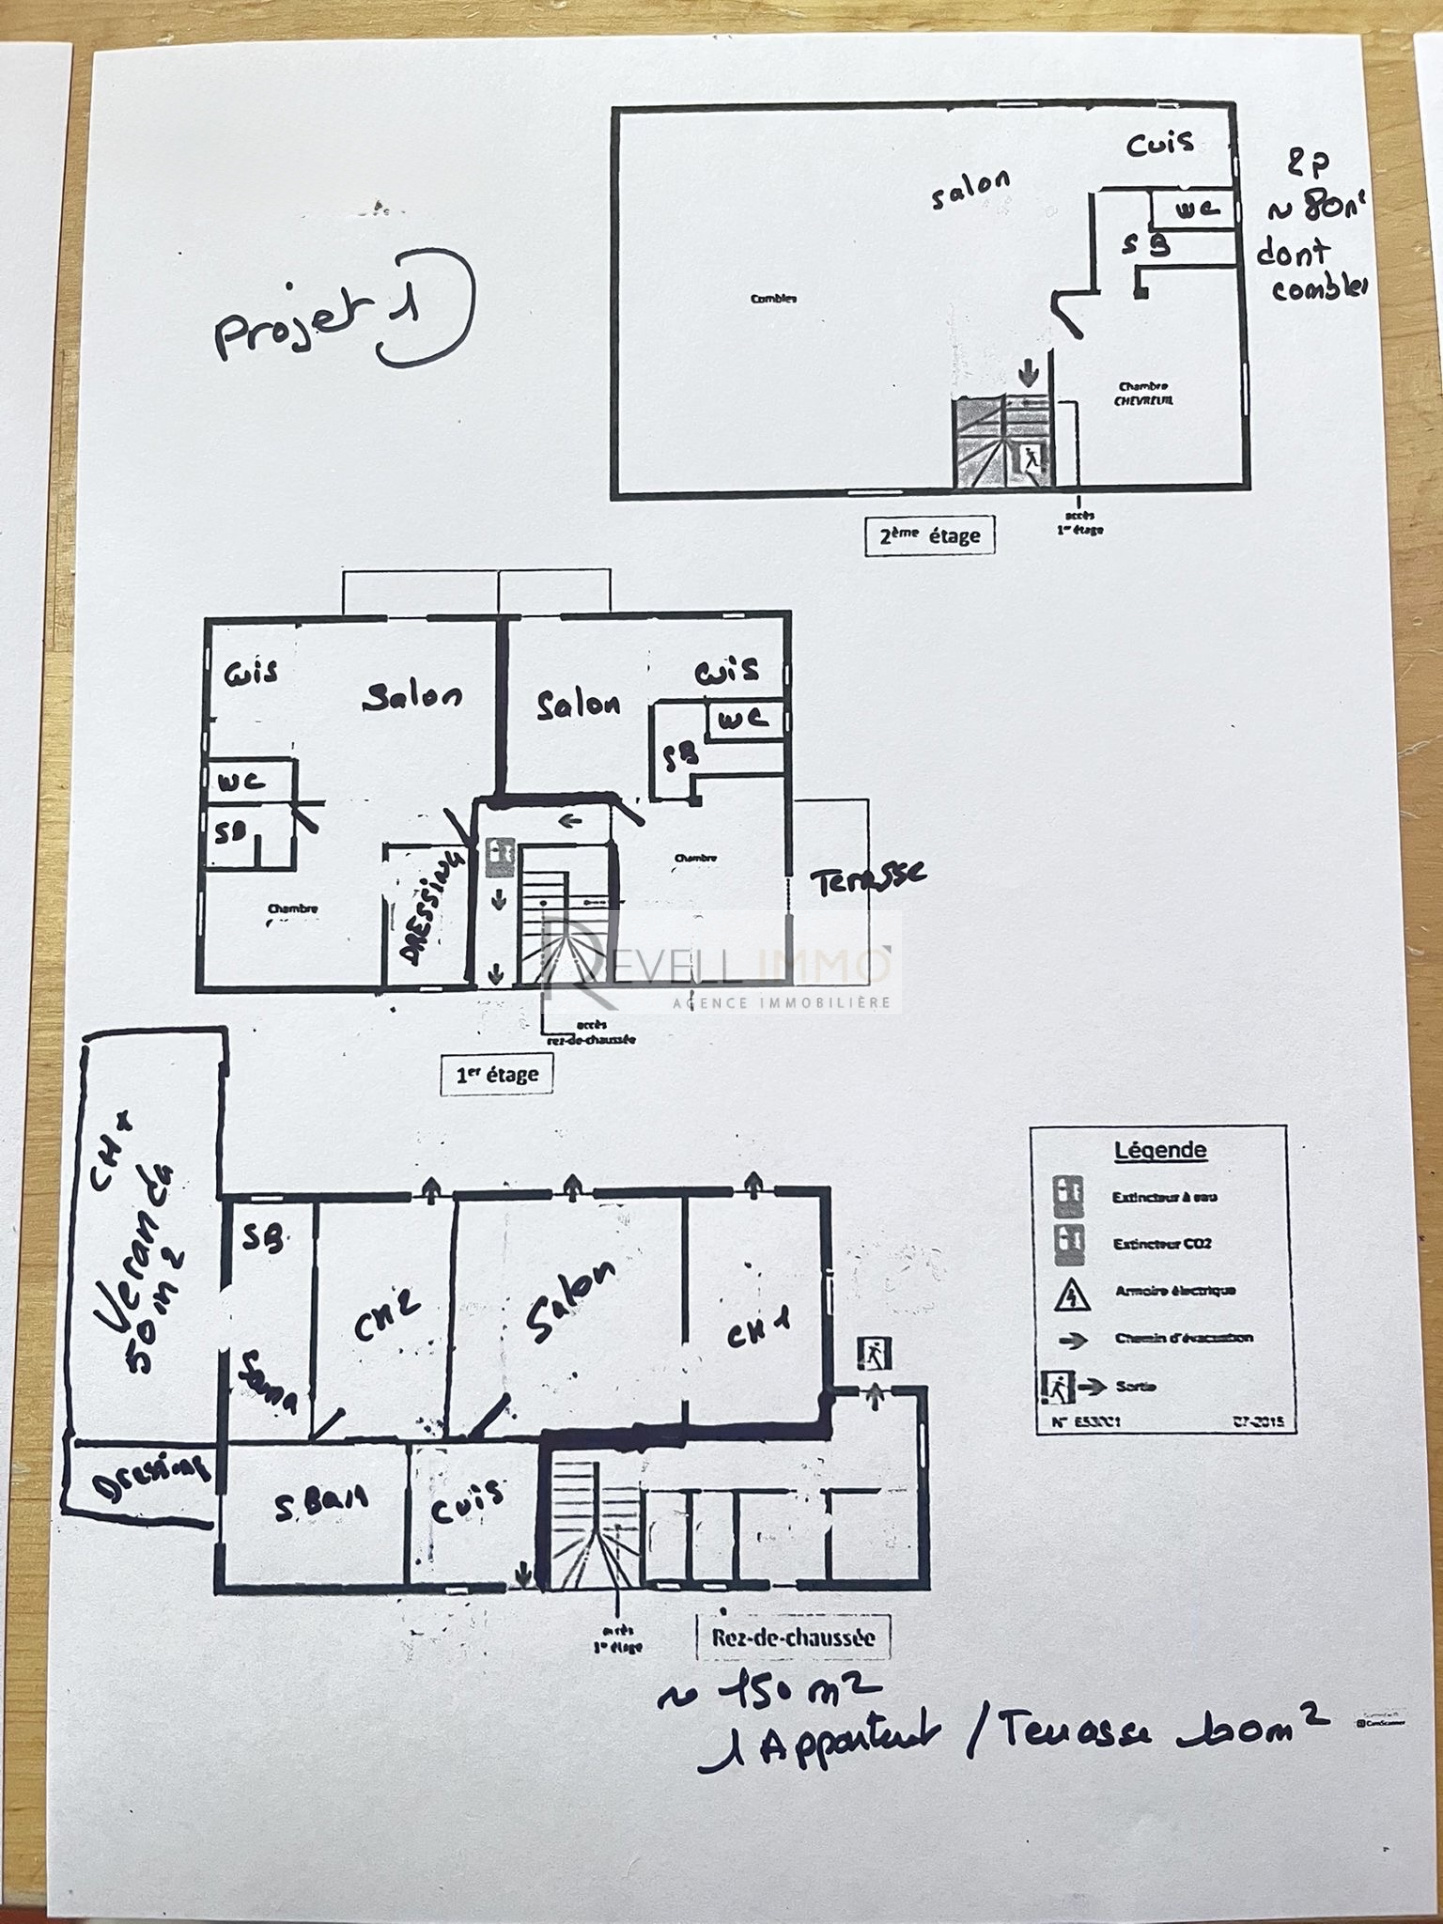 Projet 1)
Cuis
salon
WC
SB
Combles
Chambre
CHEVREUIL
2p
~ 80m²
dont
combles
accès
1er étage
2ème étage
Cuis
Salon
Salon
Cuis
WC
SB
WC
SB
Chambre
DRESSING
Chambre
Terrasse
REVELL IMMO
AGENCE IMMOBILIÈRE
accès
rez-de-chaussée
1er étage
CH
Veranda
50 m2
Dressing
SB
Sauna
CH2
Salon
CH1
S Bain
Cuis
accès
1er étage
Rez-de-chaussée
~ 150 m2
Légende
Extincteur à eau
Extincteur CO2
Armoire électrique
Chemin d'évacuation
Sortie
N° E53001
07-2015
CamScanner